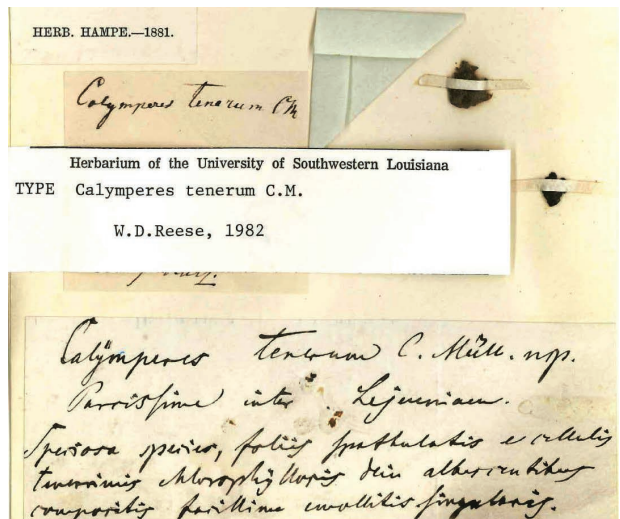 HERB. HAMPE.—1881.
Calymperes tenerum CM
Herbarium of the University of Southwestern Louisiana
TYPE Calymperes tenerum C.M.
W.D.Reese, 1982
Calÿmperes tenerum C. Müll. n. sp.
Parcissime inter Lejeuniam.
Speciosa species, foliis spathulatis e cellulis
tenerrimis chlorophyllosis dein albescentibus
compositis facillime emollitis singularis.